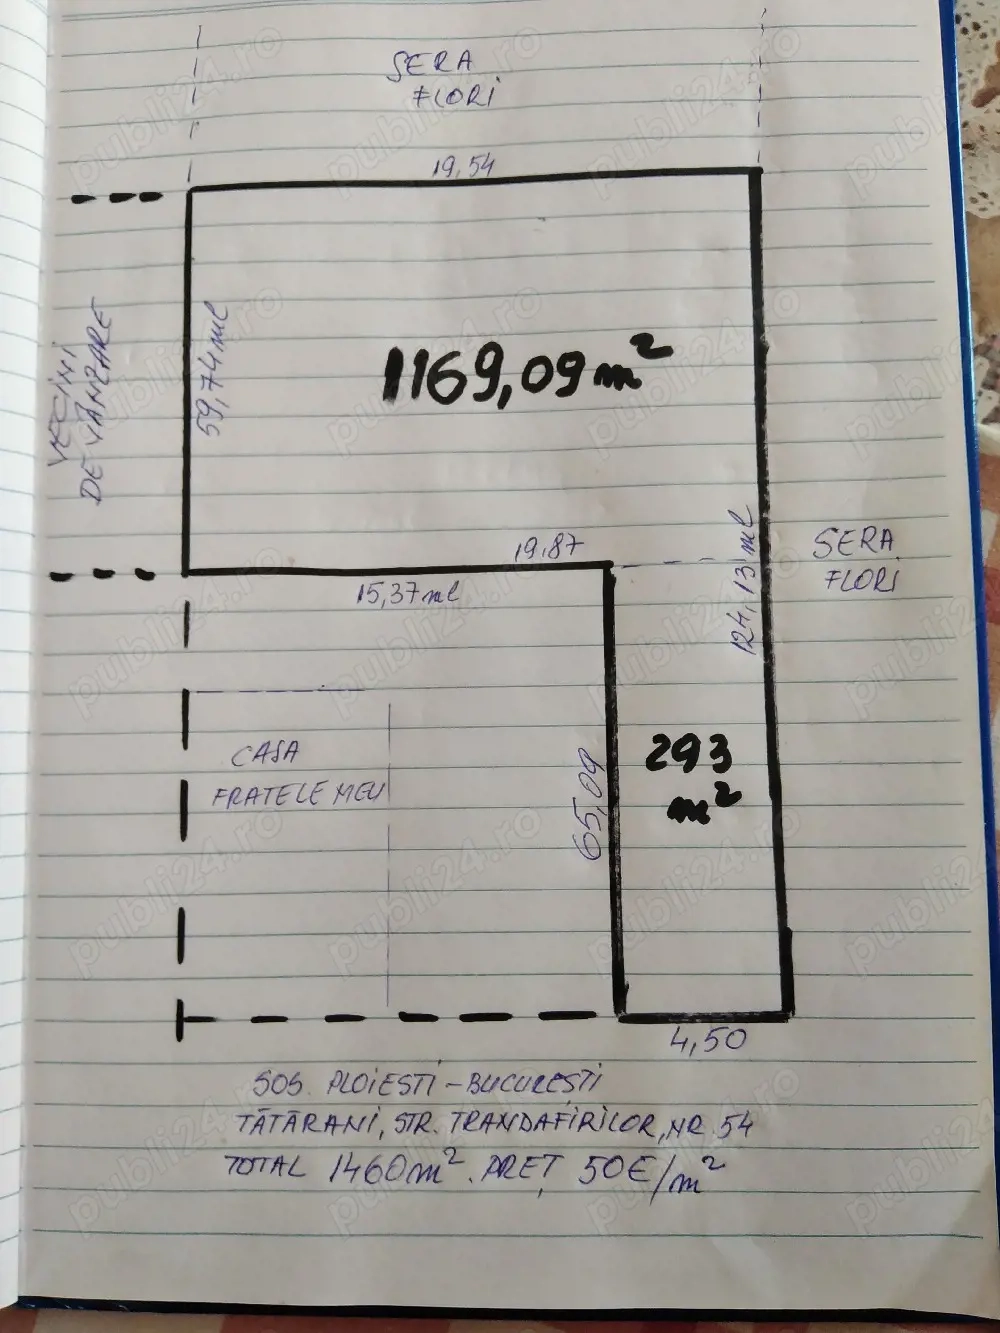 SERA
FLORI
19,54
VECINI
DE VÂNZARE
59,74 ml
1169,09 m²
19,87
15,37 ml
124,13 ml
SERA
FLORI
CASA
FRATELE MEU
65,09
293
m²
4,50
SOS. PLOIESTI - BUCUREȘTI
TĂTĂRANI, STR. TRANDAFIRILOR, NR 54
TOTAL 1460 m². PREȚ 50€/m²
publi24.ro